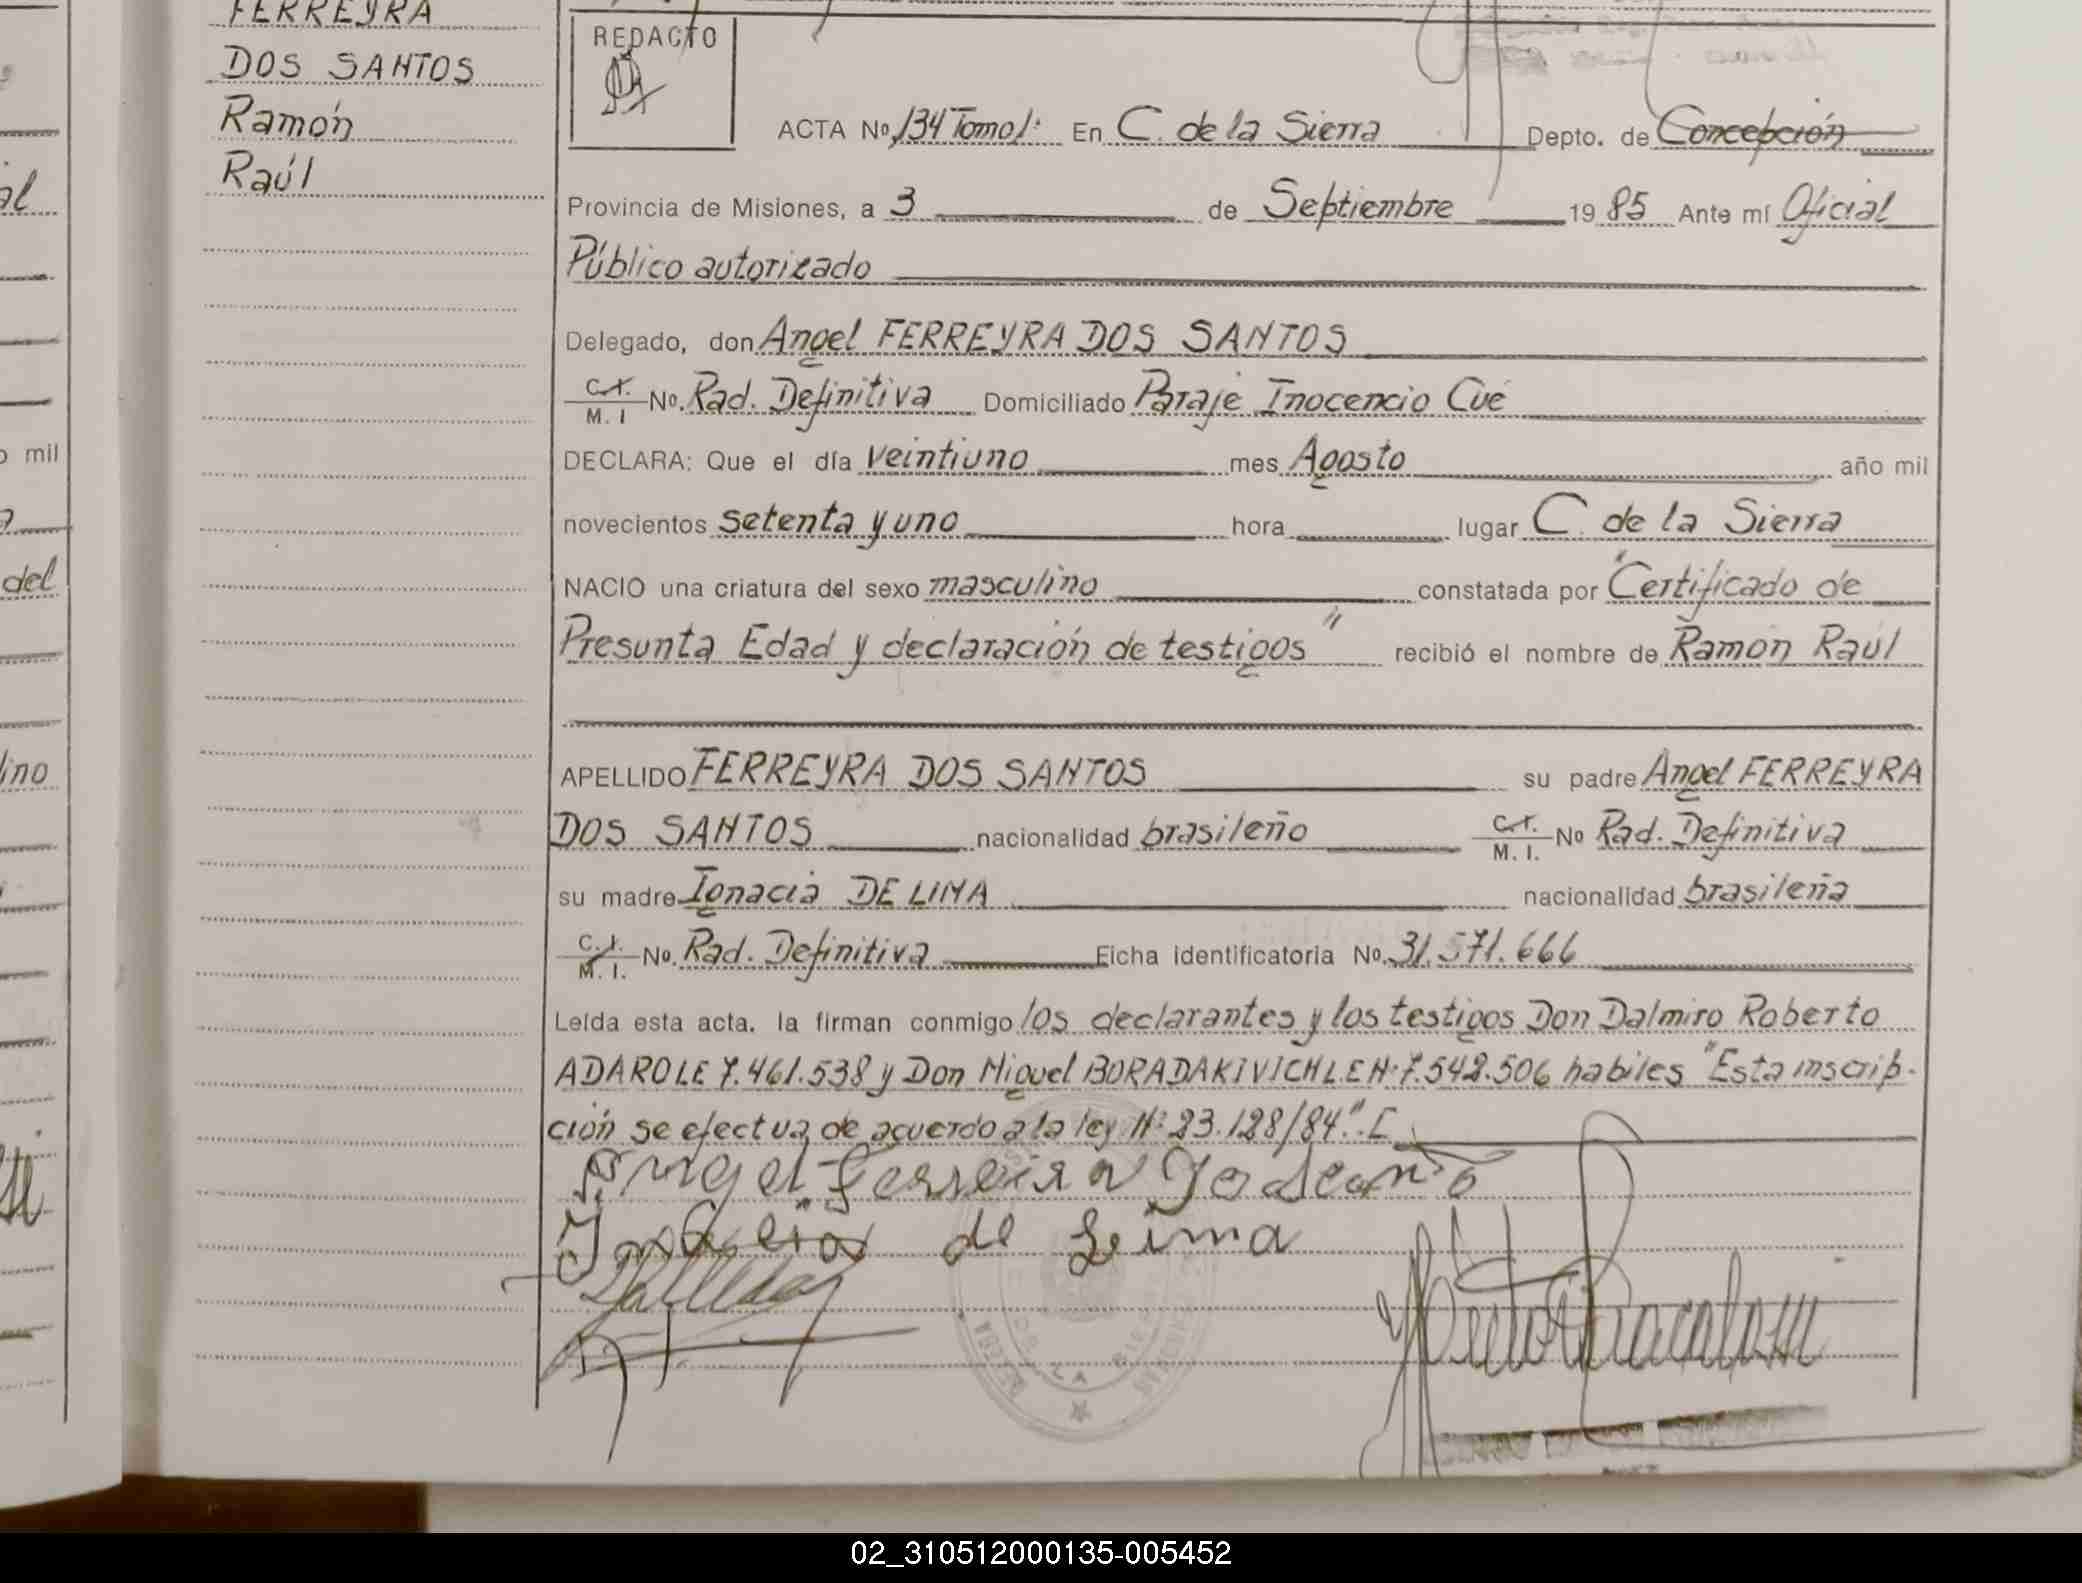 FERREYRA
DOS SANTOS
Ramón
Raúl
REDACTO
ACTA No 134 Tomo 1º En C. de la Sierra Depto. de Concepción
Provincia de Misiones, a 3 de Septiembre 19 85 Ante mí Oficial
Público autorizado
Delegado, don Angel FERREYRA DOS SANTOS
C.I. M. I No. Rad. Definitiva Domiciliado Paraje Inocencio Cué
DECLARA: Que el día veintiuno mes Agosto año mil
novecientos setenta y uno hora lugar C. de la Sierra
NACIO una criatura del sexo masculino constatada por "Certificado de
Presunta Edad y declaración de testigos" recibió el nombre de Ramón Raúl
APELLIDO FERREYRA DOS SANTOS su padre Angel FERREYRA
DOS SANTOS nacionalidad brasileño C.I. M. I. No Rad. Definitiva
su madre Ignacia DE LIMA nacionalidad brasileña
C. I. M. I. No. Rad. Definitiva Ficha identificatoria No. 31.571.666
Leída esta acta, la firman conmigo los declarantes y los testigos Don Dalmiro Roberto
ADARO LE 7.461.538 y Don Miguel BORADAKIVICH L.E Nº 7.542.506 habiles "Esta inscrip-
ción se efectua de acuerdo a la ley Nº 23.128/84".
Angel Ferreira
de Leima
o mil
del
ino
02_310512000135-005452